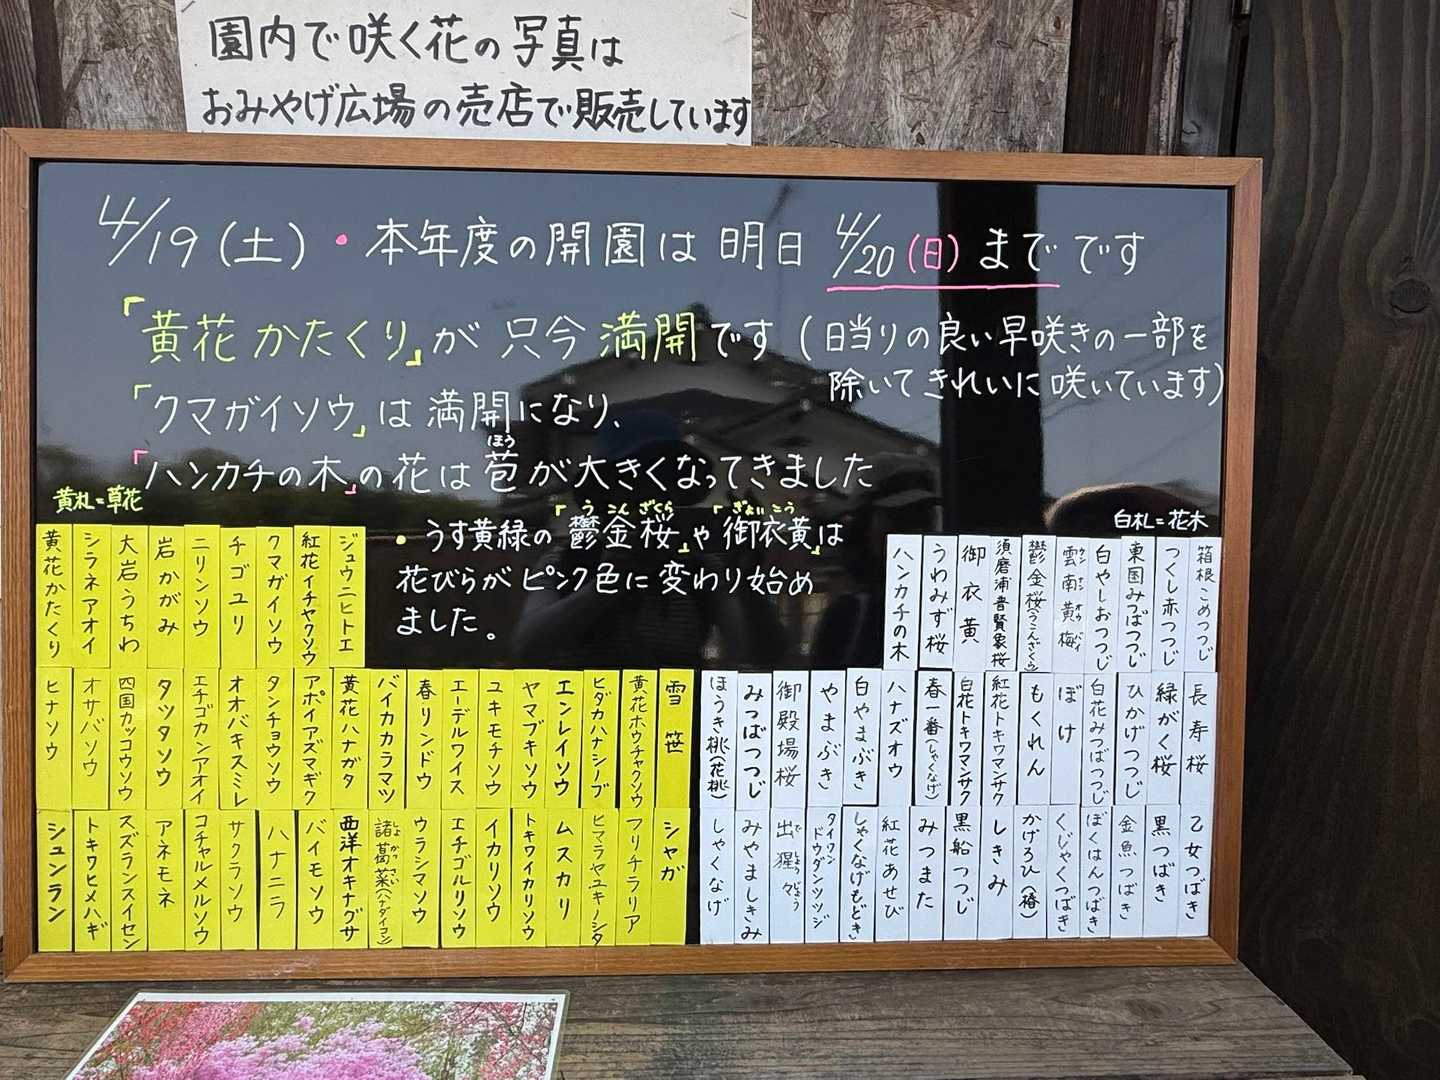 園内で咲く花の写真は
おみやげ広場の売店で販売しています
4/19(土)・本年度の開園は明日 4/20(日)までです
「黄花かたくり」が只今満開です(日当りの良い早咲きの一部を
除いてきれいに咲いています)
「クマガイソウ」は満開になり、
「ハンカチの木」の花は苞が大きくなってきました
ほう
黄札=草花
うこんざくら
ぎょいこう
・うす黄緑の「鬱金桜」や「御衣黄」は
花びらがピンク色に変わり始め
ました。
白札=花木
黄花かたくり
シラネアオイ
大岩うちわ
岩かがみ
ニリンソウ
チゴユリ
クマガイソウ
紅花イチヤクソウ
ジュウニヒトエ
ハンカチの木
うわみず桜
御衣黄
須磨浦普賢象桜
鬱金桜(うこんざくら)
雲南黄梅
ウンナンオウバイ
白やしおつつじ
東国みつばつつじ
つくし赤つつじ
箱根こめつつじ
ヒナソウ
オサバソウ
四国カッコウソウ
タツタソウ
エチゴカンアオイ
オオバキスミレ
タンチョウソウ
アポイアズマギク
黄花ハナガタ
バイカカラマツ
春リンドウ
エーデルワイス
ユキモチソウ
ヤマブキソウ
エンレイソウ
ヒダカハナシノブ
黄花ホウチャクソウ
雪笹
ほうき桃(花桃)
みつばつつじ
御殿場桜
やまぶき
白やまぶき
ハナズオウ
春一番(しゃくなげ)
白花トキワマンサク
紅花トキワマンサク
もくれん
ぼけ
白花みつばつつじ
ひかげつつじ
緑がく桜
長寿桜
シュンラン
トキワヒメハギ
スズランスイセン
アネモネ
コチャルメルソウ
サクラソウ
ハナニラ
バイモソウ
西洋オキナグサ
諸葛菜(ハナダイコン)
しょかつさい
ウラシマソウ
エチゴルリソウ
イカリソウ
トキワイカリソウ
ムスカリ
ヒマラヤユキノシタ
フリチラリア
シャガ
しゃくなげ
みやましきみ
出猩々
でしょうじょう
タイワンドウダンツツジ
しゃくなげもどき
紅花あせび
みつまた
黒船つつじ
しきみ
かげろひ(椿)
くじゃくつばき
ぼくはんつばき
金魚つばき
黒つばき
乙女つばき